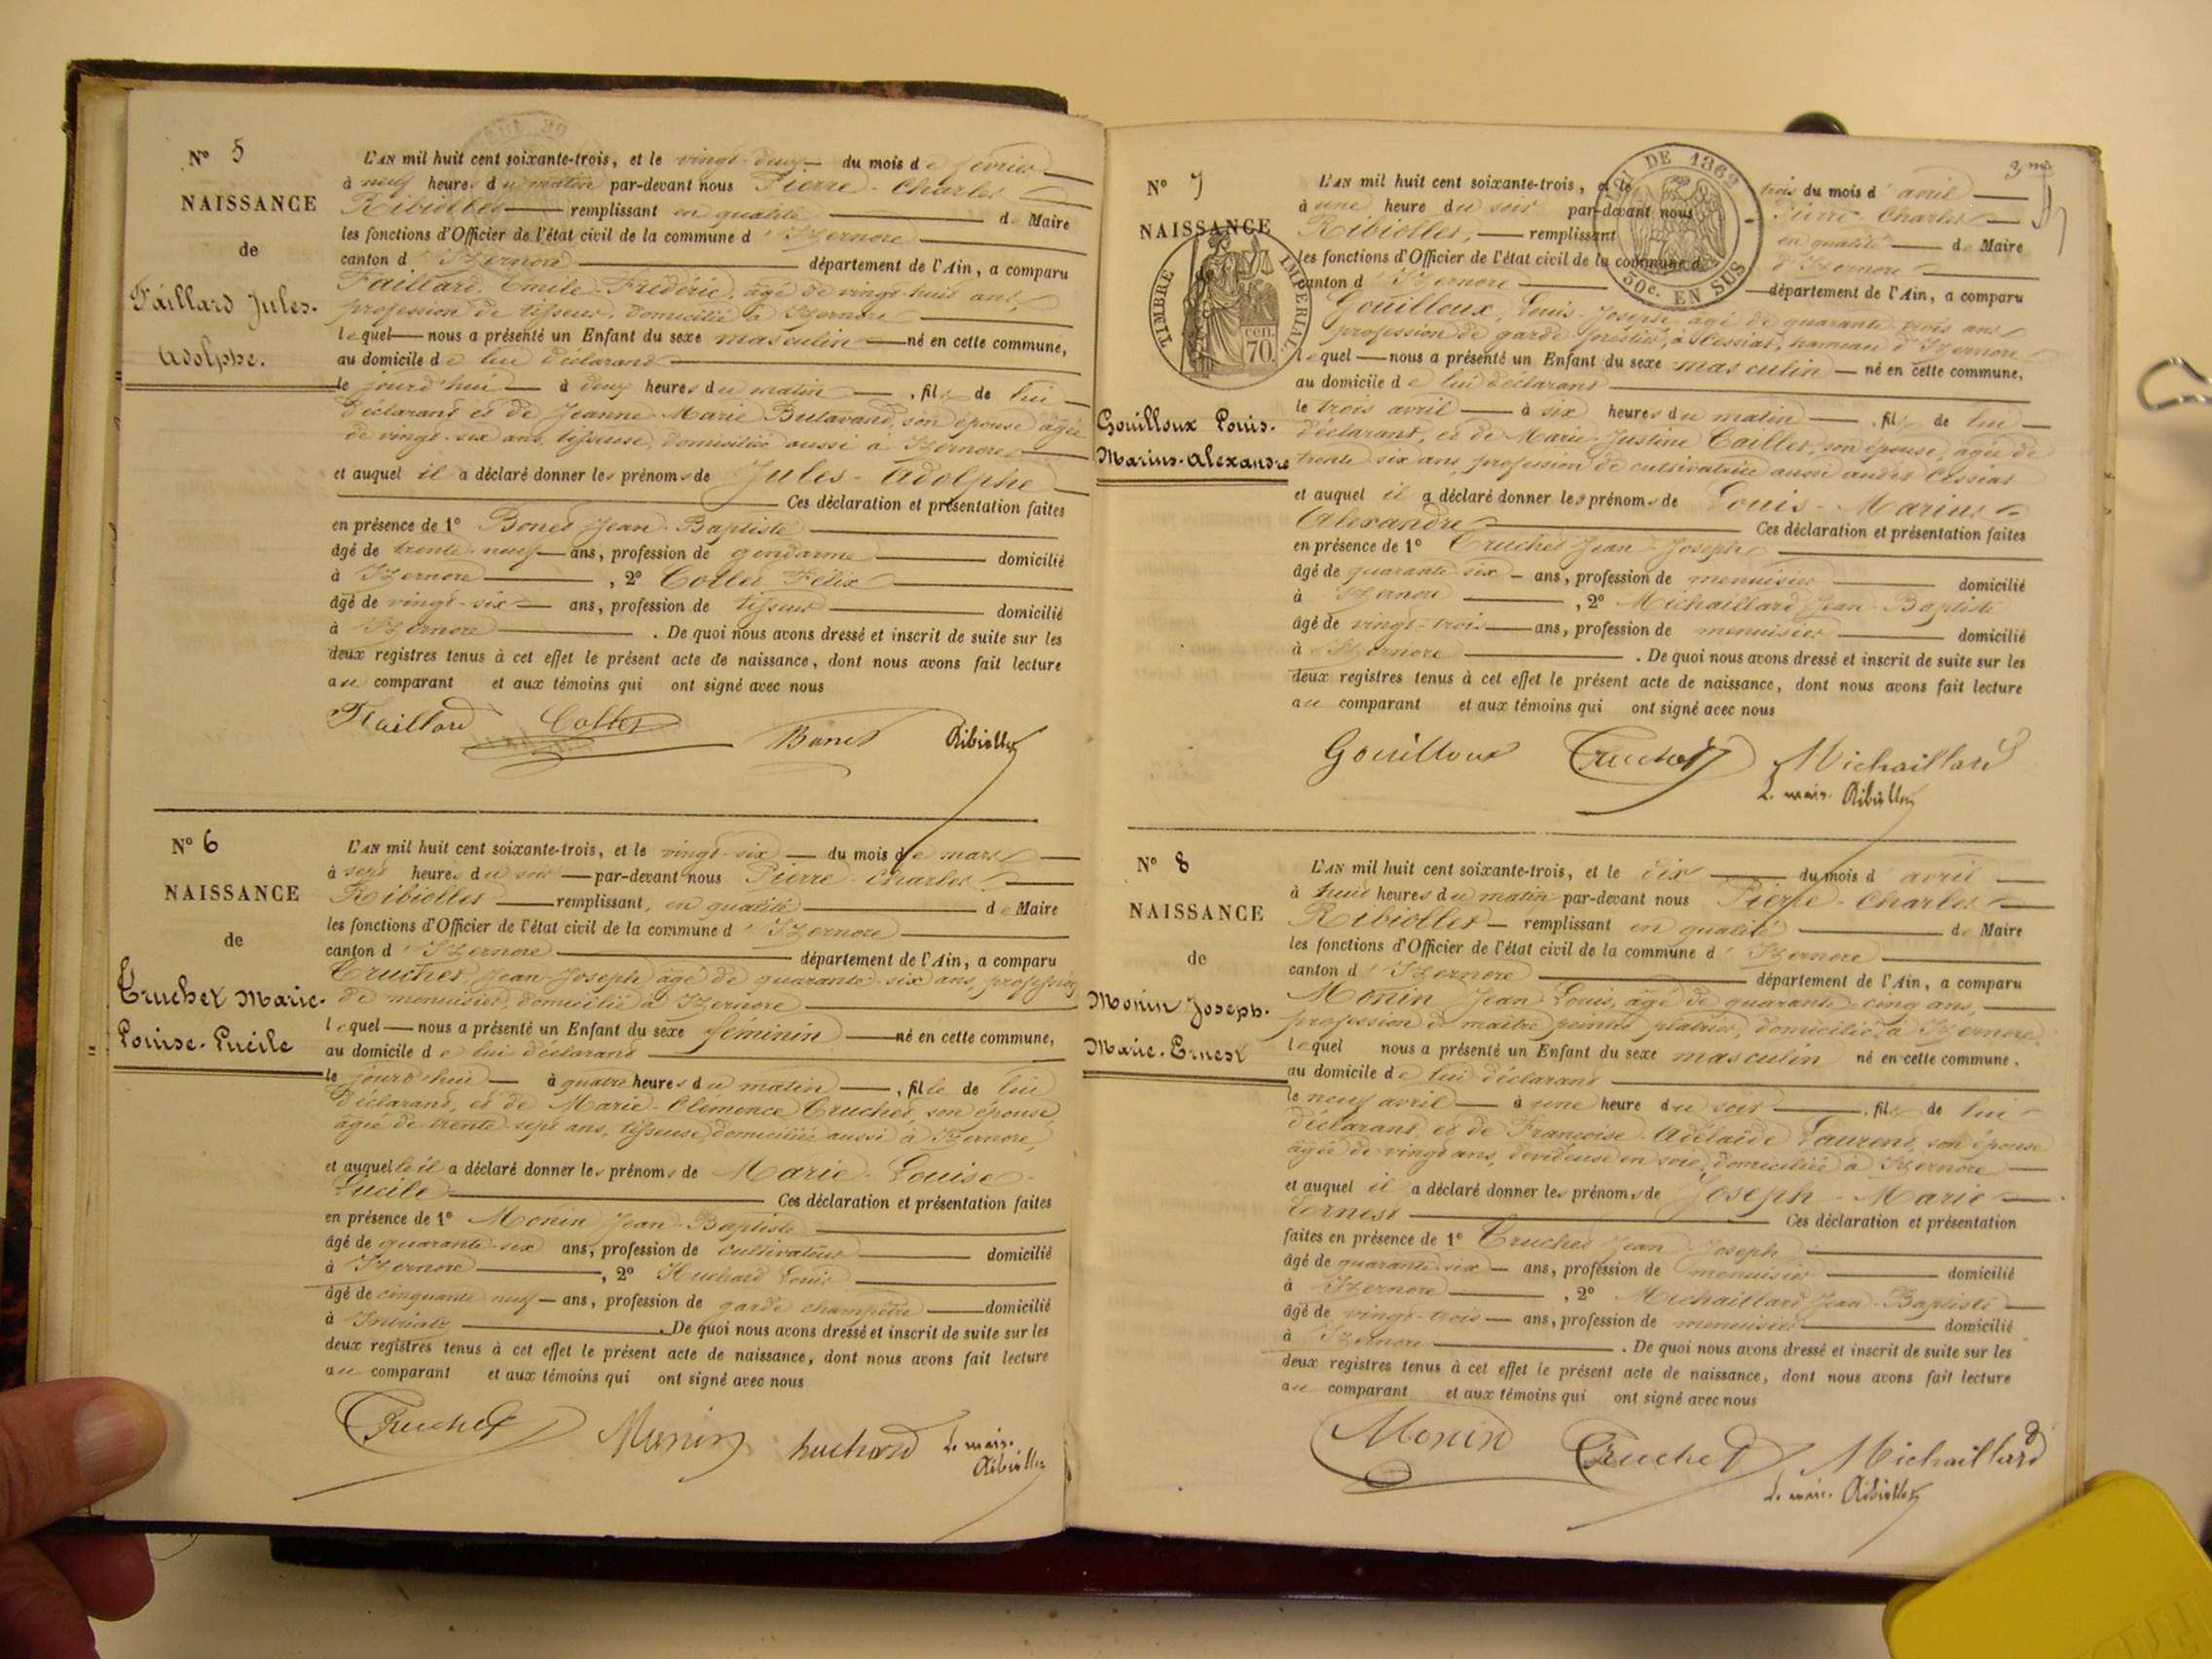 N° 5
NAISSANCE
de
Faillard Jules-
Adolphe.
L'AN mil huit cent soixante-trois, et le vingt-deux du mois de février
à neuf heures du matin par-devant nous Pierre-Charles
Ribiollet remplissant en qualité de Maire
les fonctions d'Officier de l'état civil de la commune d'Izernore
canton d'Izernore département de l'Ain, a comparu
Faillard, Emile-Frédéric, âgé de vingt-huit ans,
profession de tisseur, domicilié à Izernore
lequel nous a présenté un Enfant du sexe masculin né en cette commune,
au domicile de lui déclarant
le jourd'hui à deux heures du matin, fils de lui
déclarant et de Jeanne-Marie Butavand, son épouse âgée
de vingt-six ans, tisseuse, domiciliée aussi à Izernore
et auquel il a déclaré donner les prénoms de Jules-Adolphe
Ces déclaration et présentation faites
en présence de 1° Bonet Jean-Baptiste
âgé de trente-neuf ans, profession de gendarme domicilié
à Izernore, 2° Collet Félix
âgé de vingt-six ans, profession de tisseur domicilié
à Izernore. De quoi nous avons dressé et inscrit de suite sur les
deux registres tenus à cet effet le présent acte de naissance, dont nous avons fait lecture
au comparant et aux témoins qui ont signé avec nous
Faillard Collet Bonet Ribiollet
N° 6
NAISSANCE
de
Truchet Marie-
Louise-Lucile
L'AN mil huit cent soixante-trois, et le vingt-six du mois de mars
à sept heures du soir par-devant nous Pierre-Charles
Ribiollet remplissant, en qualité de Maire
les fonctions d'Officier de l'état civil de la commune d'Izernore
canton d'Izernore département de l'Ain, a comparu
Truchet, Jean-Joseph âgé de quarante-six ans, profession
de menuisier, domicilié à Izernore
lequel nous a présenté un Enfant du sexe féminin né en cette commune,
au domicile de lui déclarant
le jourd'hui à quatre heures du matin, fille de lui
déclarant, et de Marie-Clémence Truchet, son épouse,
âgée de trente-sept ans, tisseuse, domiciliée aussi à Izernore,
et auquelle il a déclaré donner les prénoms de Marie-Louise-
Lucile Ces déclaration et présentation faites
en présence de 1° Monin Jean-Baptiste
âgé de quarante-six ans, profession de cultivateur domicilié
à Izernore, 2° Huchard Louis
âgé de cinquante-neuf ans, profession de garde champêtre domicilié
à Intriatz. De quoi nous avons dressé et inscrit de suite sur les
deux registres tenus à cet effet le présent acte de naissance, dont nous avons fait lecture
au comparant et aux témoins qui ont signé avec nous
Truchet Monin huchard Le maire Ribiollet
3me
N° 7
NAISSANCE
TIMBRE IMPERIAL
cen. 70.
LOI DE 1862
50c. EN SUS
Gouilloux Louis-
Marius-Alexandre
L'AN mil huit cent soixante-trois, et le trois du mois d'avril
à une heure du soir par-devant nous Pierre-Charles
Ribiollet, remplissant en qualité de Maire
les fonctions d'Officier de l'état civil de la commune d'Izernore
canton d'Izernore département de l'Ain, a comparu
Gouilloux, Louis-Joseph âgé de quarante-trois ans
profession de garde forestier, à Cessiat, hameau d'Izernore
lequel nous a présenté un Enfant du sexe masculin né en cette commune,
au domicile de lui déclarant
le trois avril à six heures du matin, fils de lui
déclarant, et de Marie-Justine Caillet, son épouse, âgée de
trente six ans profession de cultivatrice aussi audit Cessiat
et auquel il a déclaré donner les prénoms de Louis-Marius
Alexandre Ces déclaration et présentation faites
en présence de 1° Truchet Jean-Joseph
âgé de quarante-six ans, profession de menuisier domicilié
à Izernore, 2° Michaillard Jean-Baptiste
âgé de vingt-trois ans, profession de menuisier domicilié
à Izernore. De quoi nous avons dressé et inscrit de suite sur les
deux registres tenus à cet effet le présent acte de naissance, dont nous avons fait lecture
au comparant et aux témoins qui ont signé avec nous
Gouilloux Truchet Michaillard
Le maire Ribiollet
N° 8
NAISSANCE
de
Monin Joseph-
Marie-Ernest
L'AN mil huit cent soixante-trois, et le dix du mois d'avril
à huit heures du matin par-devant nous Pierre-Charles
Ribiollet remplissant en qualité de Maire
les fonctions d'Officier de l'état civil de la commune d'Izernore
canton d'Izernore département de l'Ain, a comparu
Monin Jean-Louis, âgé de quarante-cinq ans,
profession de maître peintre plâtrier, domicilié à Izernore
lequel nous a présenté un Enfant du sexe masculin né en cette commune,
au domicile de lui déclarant
le neuf avril à une heure du soir, fils de lui
déclarant, et de Françoise-Adélaïde Laurent, son épouse
âgée de vingt ans, dévideuse en soie, domiciliée à Izernore
et auquel il a déclaré donner les prénoms de Joseph-Marie
Ernest Ces déclaration et présentation
faites en présence de 1° Truchet Jean-Joseph
âgé de quarante-six ans, profession de menuisier domicilié
à Izernore, 2° Michaillard Jean-Baptiste
âgé de vingt-trois ans, profession de menuisier domicilié
à Izernore. De quoi nous avons dressé et inscrit de suite sur les
deux registres tenus à cet effet le présent acte de naissance, dont nous avons fait lecture
au comparant et aux témoins qui ont signé avec nous
Monin Truchet Michaillard
Le maire Ribiollet